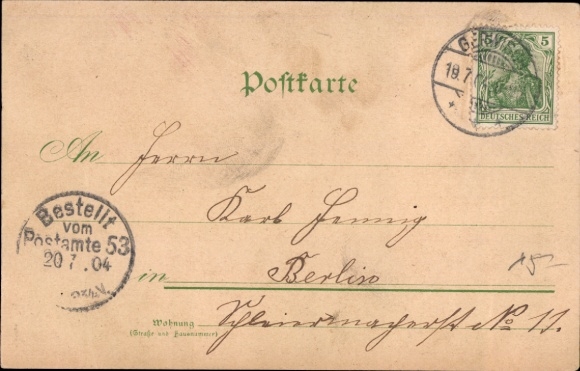 Postkarte
5
DEUTSCHES REICH
19.7.
An Herrn
Karl Hennig
Bestellt
vom
Postamte 53
20 7. 04
in Berlin
15-
Wohnung Schleiermacherst No 13.
(Straße und Hausnummer)